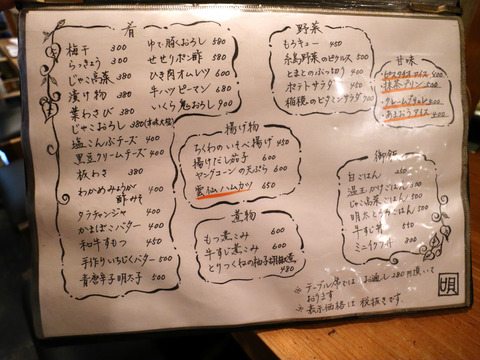 肴
梅干 300
らっきょう 300
じゃこ高菜 380
漬け物 380
葉わさび 380
じゃこおろし 380
塩こんぶチーズ 400
黒豆クリームチーズ 400
板わさ 380
わかめみょうが
酢みそ 400
タラチャンジャ 400
かまぼこバター 400
和牛すもつ 450
手作りいちじくバター 500
青唐辛子明太子 500
ゆで豚くおろし 580
せせりポン酢 580
ひき肉オムレツ 680
牛ハツピーマン 680
いくら鬼おろし 900
野菜
もろキュー 450
糸島野菜のピクルス 500
とまとのぶっ切り 400
ポテトサラダ 400
稲穂のビタミンサラダ 700
甘味
ピスタチオアイス 400
抹茶プリン 500
クレームブリュレ 400
あまおうアイス 400
揚げ物
ちくわのいそべ揚げ 450
揚げだし茄子 600
ヤングコーンの天ぷら 600
雲仙ハムカツ 650
煮物
もつ煮こみ 600
牛すじ煮こみ 600
とりつくねの柚子胡椒煮 480
御飯
白ごはん 350
温玉かけごはん 500
じゃこ高菜ごはん 500
明太とろろごはん 500
牛すじ丼 500
ミニイクラ丼 800
※テーブル席ではお通し280円頂いて
おります
※表示価格は税抜きです。
唄